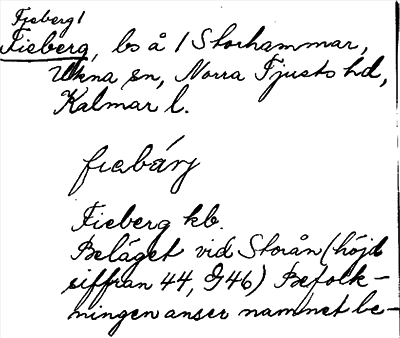 Fjeberg/
Fieberg, bs å / Storhammar,
Ukna sn, Norra Tjusts hd,
Kalmar l.
fiebárj
Fieberg kb.
Beläget vid Storån (höjd
siffran 44, 946) Befolk-
ningen anser namnet be-